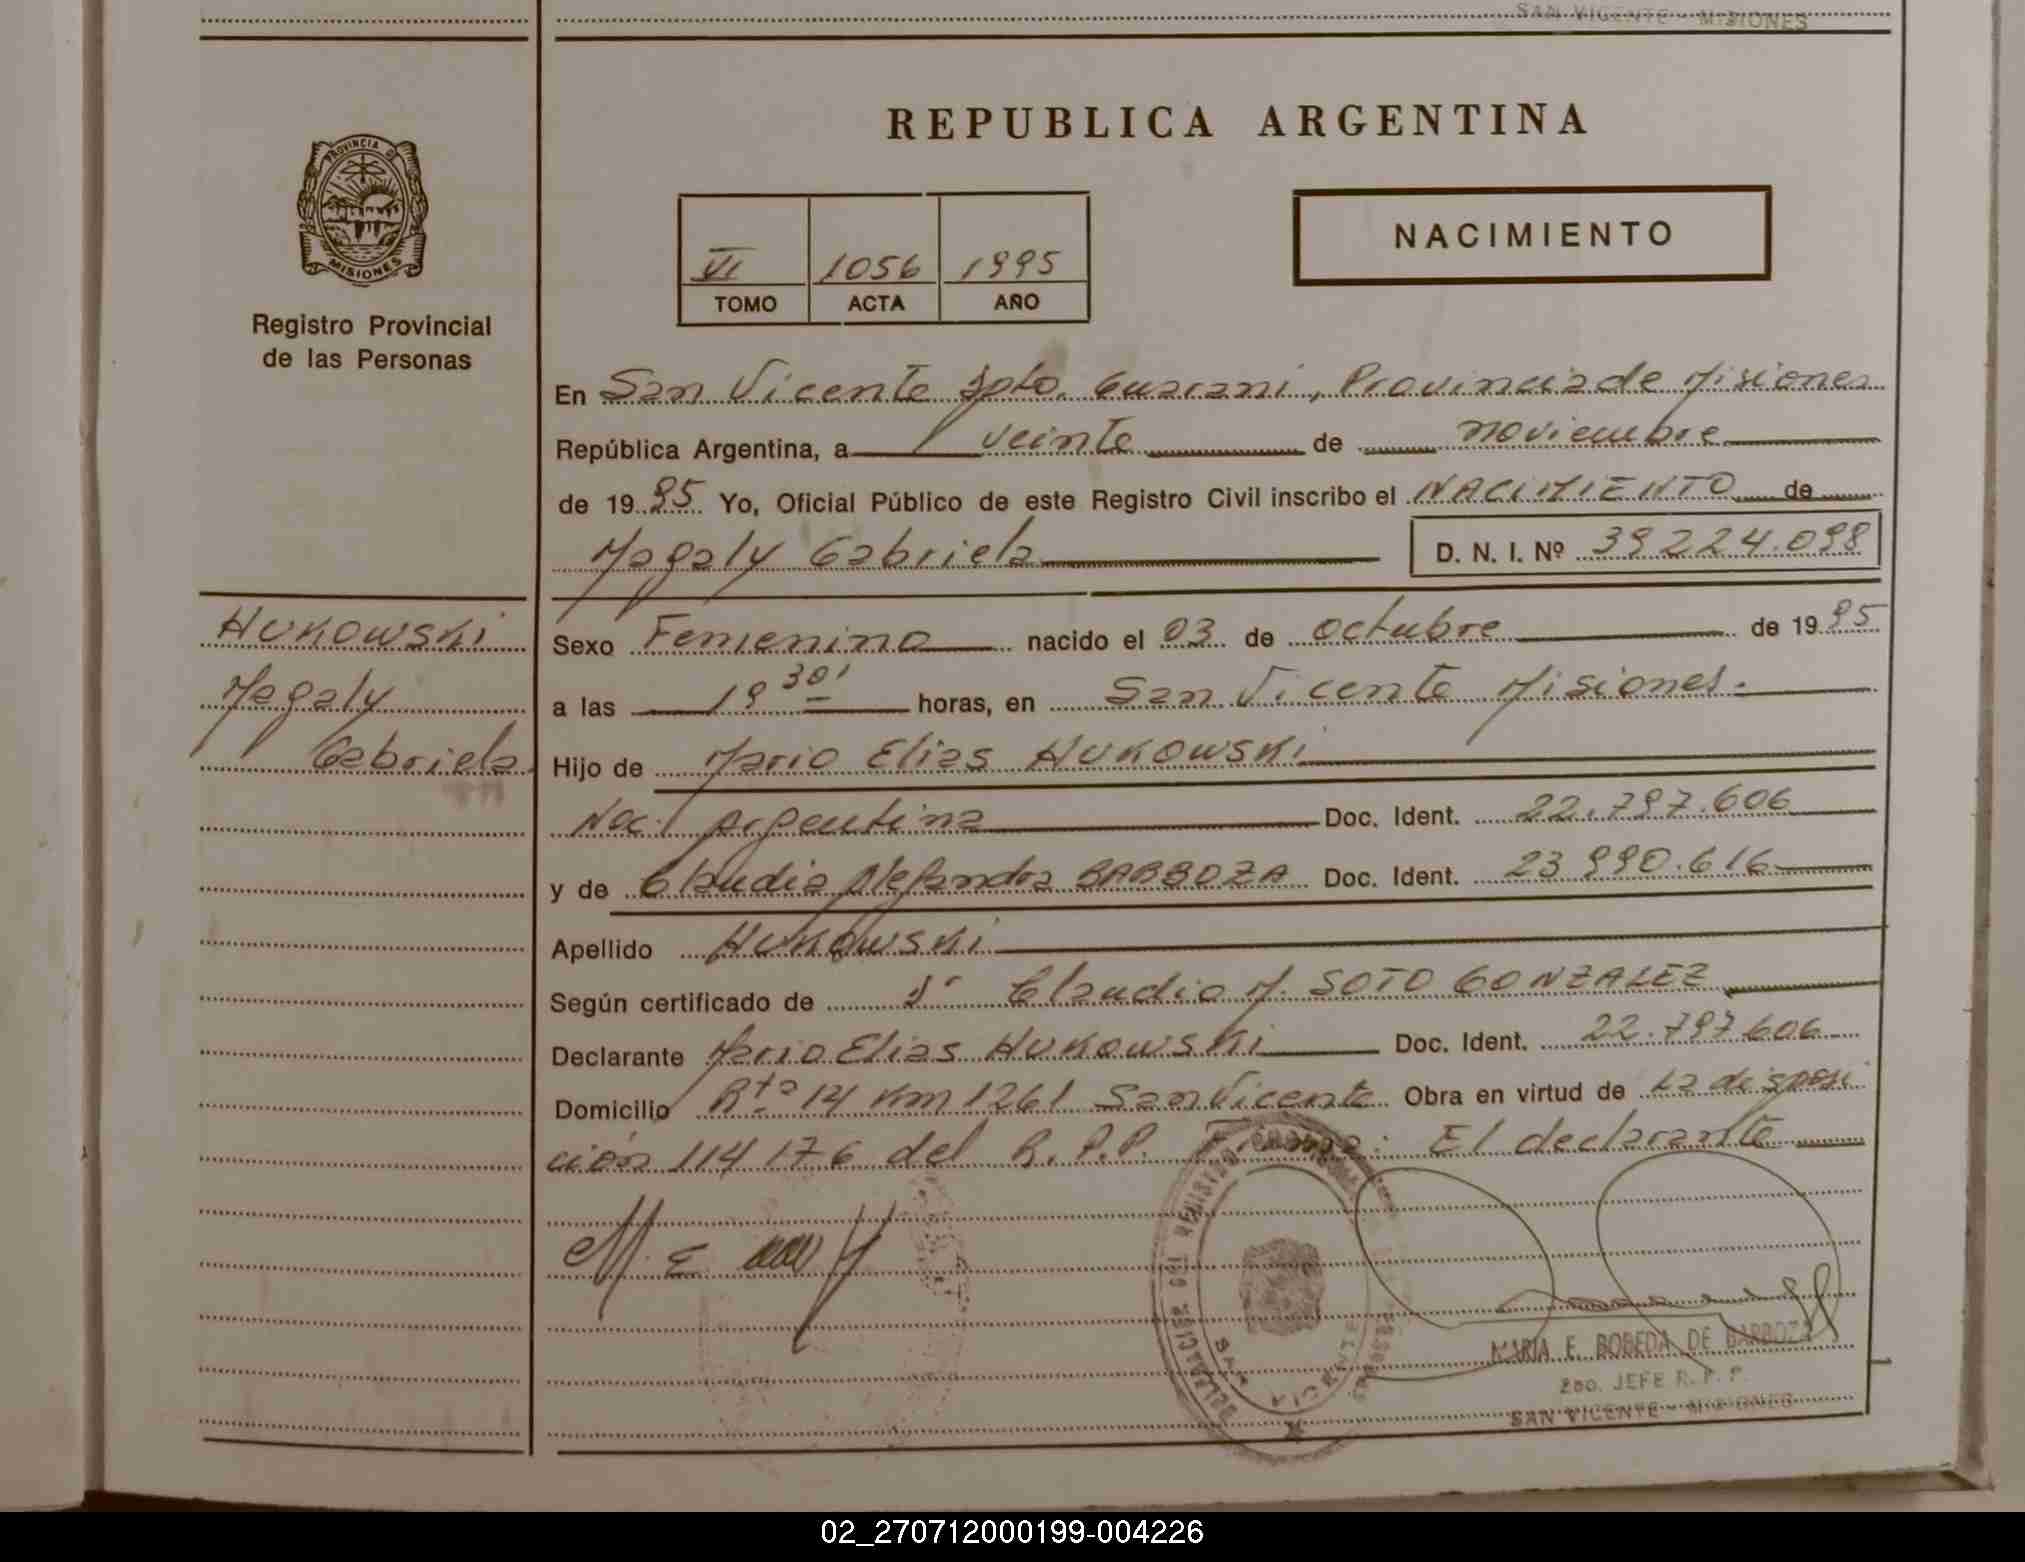 SAN VICENTE - MISIONES
REPUBLICA ARGENTINA
PROVINCIA DE
MISIONES
Registro Provincial
de las Personas
VI 1056 1995
TOMO ACTA AÑO
NACIMIENTO
En San Vicente Dpto. Guarani, Provincia de Misiones
República Argentina, a veinte de noviembre
de 1995 Yo, Oficial Público de este Registro Civil inscribo el NACIMIENTO de
Magaly Gabriela D. N. I. Nº 39224.098
HUKOWSKI
Magaly
Gabriela
Sexo Femenino nacido el 03 de octubre de 1995
a las 19 30' horas, en San Vicente Misiones.
Hijo de Mario Elias HUKOWSKI
Nac. Argentina Doc. Ident. 22.797.606
y de Claudia Alejandra BARBOZA Doc. Ident. 23990.616
Apellido HUKOWSKI
Según certificado de Dr Claudio M. SOTO GONZALEZ
Declarante Mario Elias HUKOWSKI Doc. Ident. 22.797.606
Domicilio Rta 14 Km 1261 San Vicente Obra en virtud de La disposi
ción 114/76 del R.P.P. Firma: El declarante
M. E
MARIA E. BOBEDA DE BARBOZA
2do. JEFE R. P. P.
SAN VICENTE - MISIONES
02_270712000199-004226